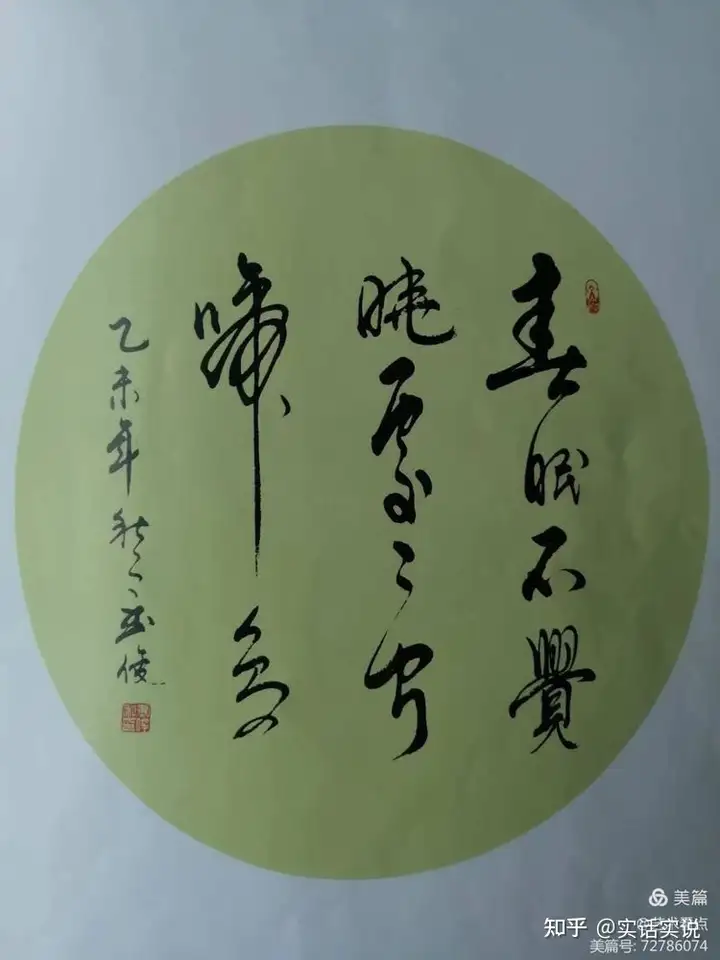 春眠不覺
晓處〻闻
啼鸟
乙未年秋
美篇
知乎 @实话实说
美篇号: 72786074